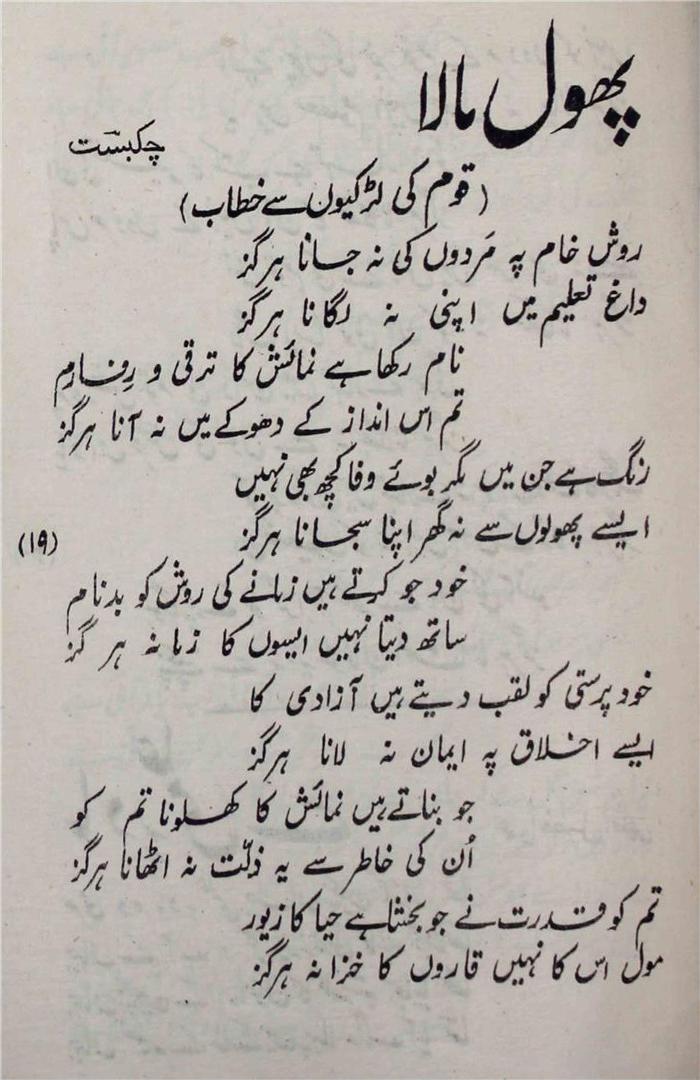 پھول مالا
چکبست
(قوم کی لڑکیوں سے خطاب)
روش خام پہ مَردوں کی نہ جانا ہرگز
داغ تعلیم میں اپنی نہ لگانا ہرگز
نام رکھا ہے نمائش کا ترقی و رفارم
تم اس انداز کے دھوکے میں نہ آنا ہرگز
رنگ ہے جن میں مگر بوئے وفا کچھ بھی نہیں
ایسے پھولوں سے نہ گھر اپنا سجانا ہرگز
(۱۹)
خود جو کرتے ہیں زمانے کی روش کو بدنام
ساتھ دیتا نہیں ایسوں کا زمانہ ہرگز
خود پرستی کو لقب دیتے ہیں آزادی کا
ایسے اخلاق پہ ایمان نہ لانا ہرگز
جو بناتے ہیں نمائش کا کھلونا تم کو
اُن کی خاطر سے یہ ذلّت نہ اٹھانا ہرگز
تم کو قدرت نے جو بخشا ہے حیا کا زیور
مول اس کا نہیں قاروں کا خزانہ ہرگز